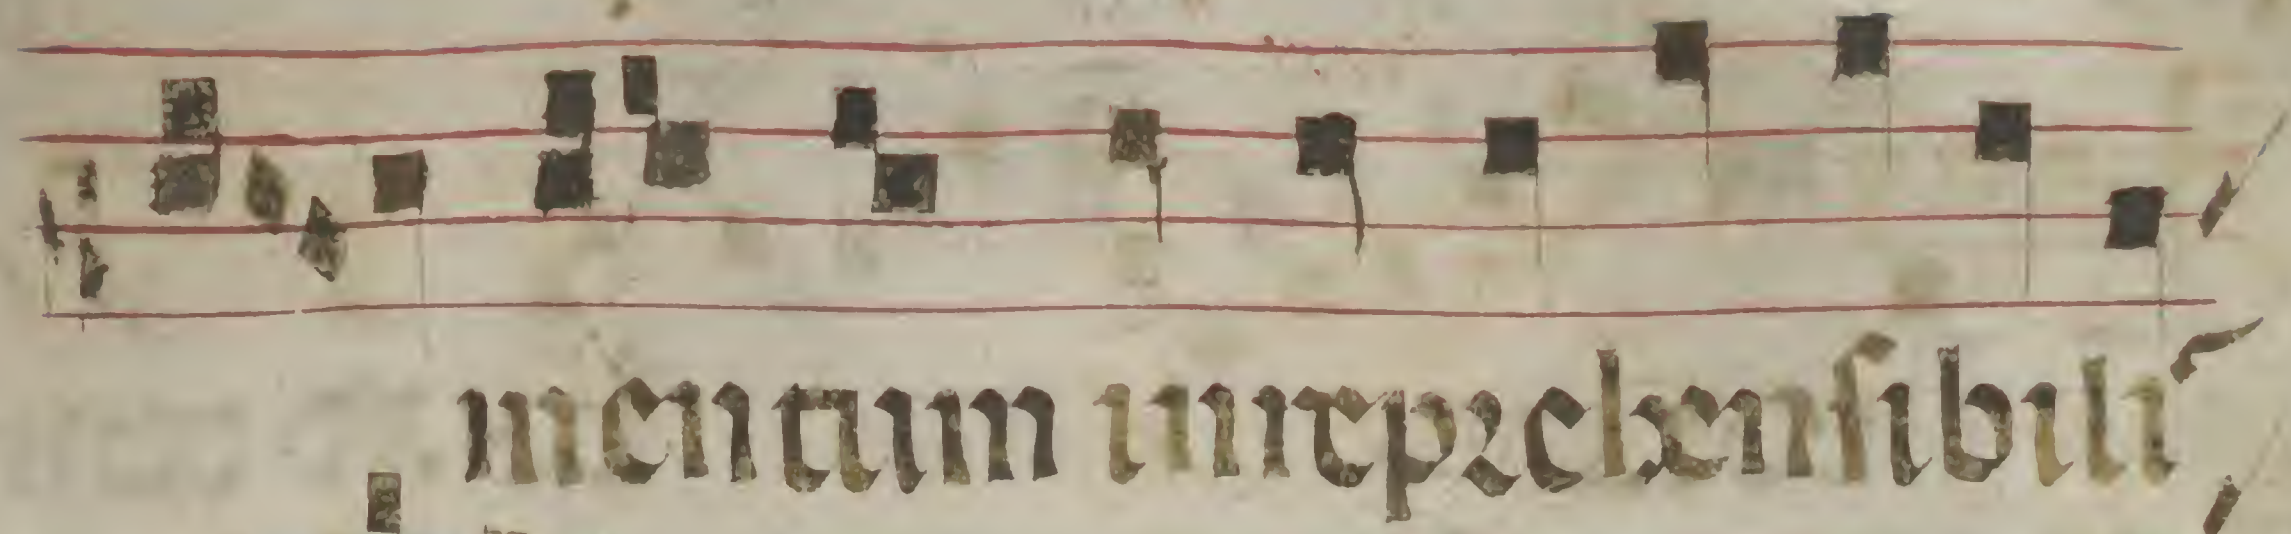 mentum irreprehensibili